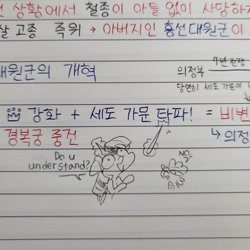 상황에서 철종이 아들 없이 사망하자
살 고종 즉위 → 아버지인 흥선대원군이
7년 전쟁
대원군의 개혁 의정부
당연히 세도 가문이
강화 + 세도 가문 타파! = 비변
경복궁 중건 ↳ 의정
Do u
understand?
NO..